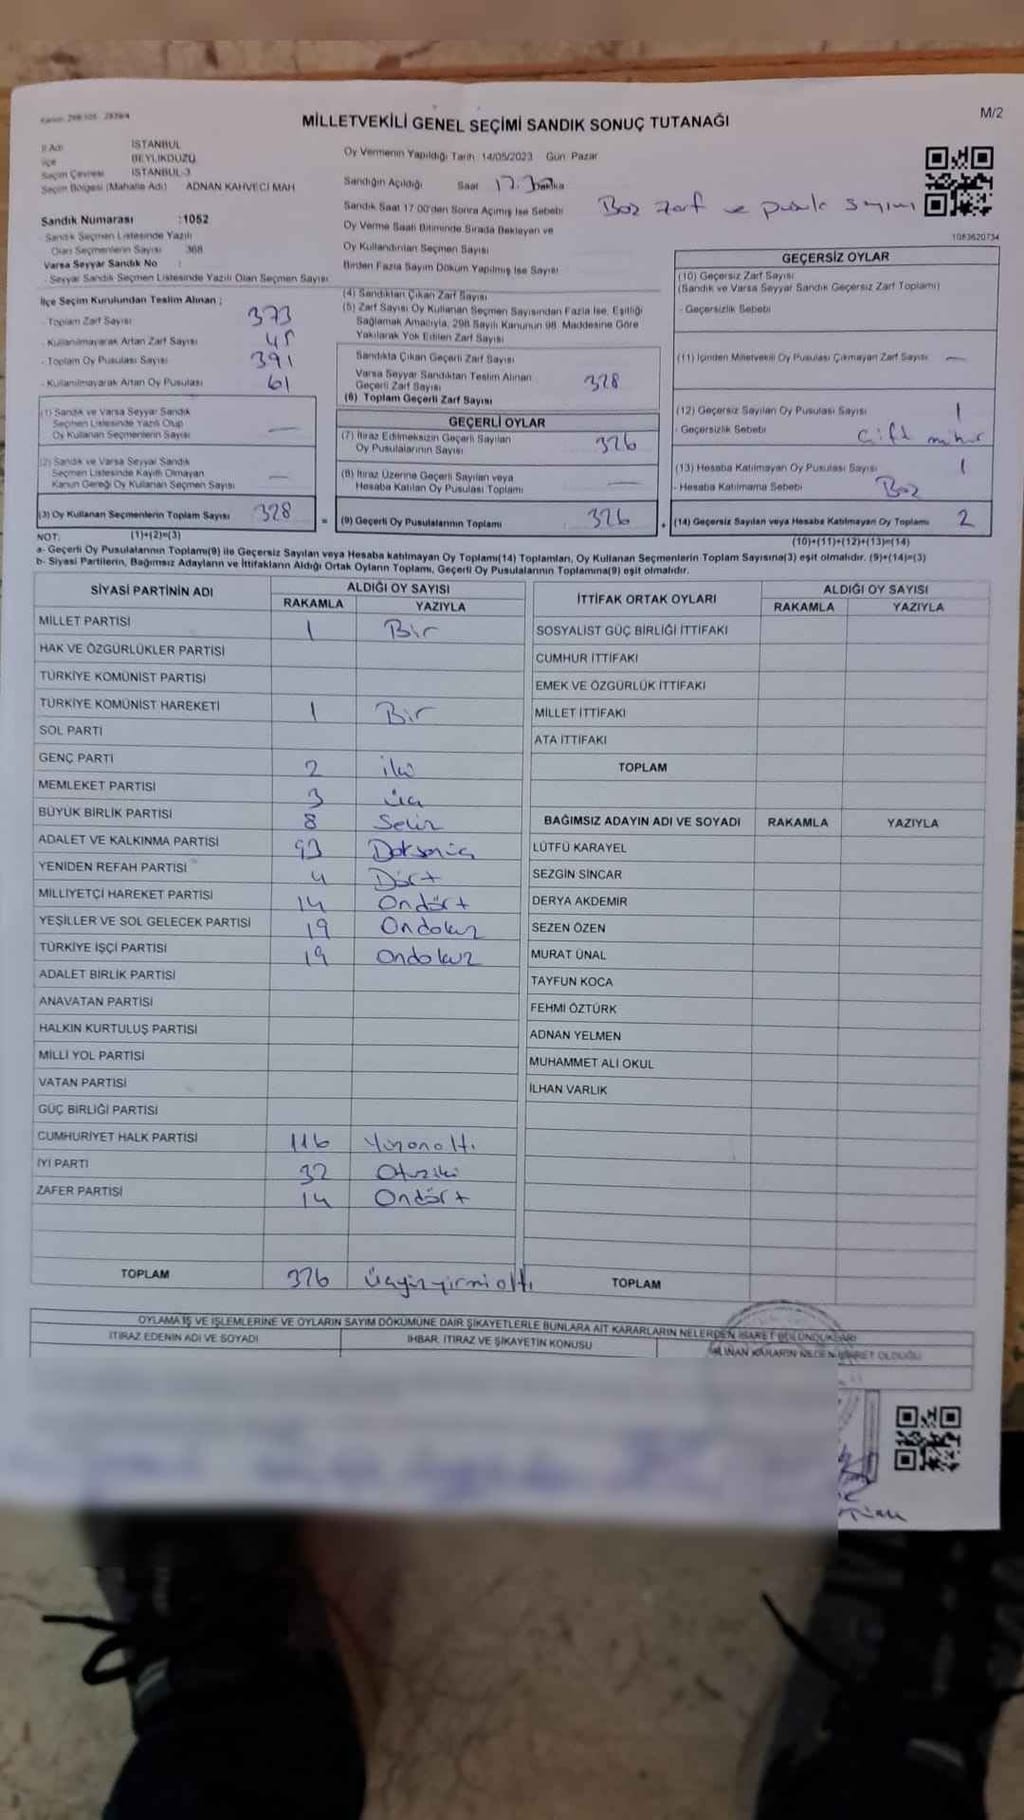 M/2
MİLLETVEKİLİ GENEL SEÇİMİ SANDIK SONUÇ TUTANAĞI
İl Adı İSTANBUL
İlçe BEYLİKDÜZÜ
Seçim Çevresi İSTANBUL-3
Seçim Bölgesi (Mahalle Adı) ADNAN KAHVECİ MAH
Sandık Numarası :1052
Sandık Seçmen Listesinde Yazılı
Olan Seçmenlerin Sayısı 368
Varsa Seyyar Sandık No
Seyyar Sandık Seçmen Listesinde Yazılı Olan Seçmen Sayısı
İlçe Seçim Kurulundan Teslim Alınan ;
- Toplam Zarf Sayısı 373
- Kullanılmayarak Artan Zarf Sayısı 45
- Toplam Oy Pusulası Sayısı 391
- Kullanılmayarak Artan Oy Pusulası 61
(1) Sandık ve Varsa Seyyar Sandık
Seçmen Listesinde Yazılı Olup
Oy Kullanan Seçmenlerin Sayısı —
(2) Sandık ve Varsa Seyyar Sandık
Seçmen Listesinde Kayıtlı Olmayan
Kanun Gereği Oy Kullanan Seçmen Sayısı —
(3) Oy Kullanan Seçmenlerin Toplam Sayısı 328
Oy Vermenin Yapıldığı Tarih: 14/05/2023 Gün: Pazar
Sandığın Açıldığı Saat 17.30 Dakika
Sandık Saat 17:00'den Sonra Açımış İse Sebebi Boz zarf ve pusula sayımı
Oy Verme Saati Bitiminde Sırada Bekleyen ve
Oy Kullandırılan Seçmen Sayısı
Birden Fazla Sayım Döküm Yapılmış İse Sayısı
(4) Sandıktan Çıkan Zarf Sayısı
(5) Zarf Sayısı Oy Kullanan Seçmen Sayısından Fazla İse, Eşitliği
Sağlamak Amacıyla, 298 Sayılı Kanunun 98. Maddesine Göre
Yakılarak Yok Edilen Zarf Sayısı
Sandıkta Çıkan Geçerli Zarf Sayısı
Varsa Seyyar Sandıktan Teslim Alınan
Geçerli Zarf Sayısı
(6) Toplam Geçerli Zarf Sayısı 328
GEÇERLİ OYLAR
(7) İtiraz Edilmeksizin Geçerli Sayılan
Oy Pusulalarının Sayısı 326
(8) İtiraz Üzerine Geçerli Sayılan veya
Hesaba Katılan Oy Pusulası Toplamı —
= (9) Geçerli Oy Pusulalarının Toplamı 326
1083620734
GEÇERSİZ OYLAR
(10) Geçersiz Zarf Sayısı
(Sandık ve Varsa Seyyar Sandık Geçersiz Zarf Toplamı)
- Geçersizlik Sebebi
(11) İçinden Milletvekili Oy Pusulası Çıkmayan Zarf Sayısı —
(12) Geçersiz Sayılan Oy Pusulası Sayısı 1
- Geçersizlik Sebebi Çift mühür
(13) Hesaba Katılmayan Oy Pusulası Sayısı 1
- Hesaba Katılmama Sebebi Boz
+ (14) Geçersiz Sayılan veya Hesaba Katılmayan Oy Toplamı 2
NOT: (1)+(2)=(3) (10)+(11)+(12)+(13)=(14)
a- Geçerli Oy Pusulalarının Toplamı(9) ile Geçersiz Sayılan veya Hesaba katılmayan Oy Toplamı(14) Toplamları, Oy Kullanan Seçmenlerin Toplam Sayısına(3) eşit olmalıdır. (9)+(14)=(3)
b- Siyasi Partilerin, Bağımsız Adayların ve İttifakların Aldığı Ortak Oyların Toplamı, Geçerli Oy Pusulalarının Toplamına(9) eşit olmalıdır.
SİYASİ PARTİNİN ADI ALDIĞI OY SAYISI
RAKAMLA YAZIYLA
MİLLET PARTİSİ 1 Bir
HAK VE ÖZGÜRLÜKLER PARTİSİ
TÜRKİYE KOMÜNİST PARTİSİ
TÜRKİYE KOMÜNİST HAREKETİ 1 Bir
SOL PARTİ
GENÇ PARTİ 2 iki
MEMLEKET PARTİSİ 3 üç
BÜYÜK BİRLİK PARTİSİ 8 Sekiz
ADALET VE KALKINMA PARTİSİ 93 Doksanüç
YENİDEN REFAH PARTİSİ 4 Dört
MİLLİYETÇİ HAREKET PARTİSİ 14 Ondört
YEŞİLLER VE SOL GELECEK PARTİSİ 19 Ondokuz
TÜRKİYE İŞÇİ PARTİSİ 19 Ondokuz
ADALET BİRLİK PARTİSİ
ANAVATAN PARTİSİ
HALKIN KURTULUŞ PARTİSİ
MİLLİ YOL PARTİSİ
VATAN PARTİSİ
GÜÇ BİRLİĞİ PARTİSİ
CUMHURİYET HALK PARTİSİ 116 Yüzonaltı
İYİ PARTİ 32 Otuziki
ZAFER PARTİSİ 14 Ondört
TOPLAM 326 üçyüzyirmialtı
İTTİFAK ORTAK OYLARI ALDIĞI OY SAYISI
RAKAMLA YAZIYLA
SOSYALİST GÜÇ BİRLİĞİ İTTİFAKI
CUMHUR İTTİFAKI
EMEK VE ÖZGÜRLÜK İTTİFAKI
MİLLET İTTİFAKI
ATA İTTİFAKI
TOPLAM
BAĞIMSIZ ADAYIN ADI VE SOYADI RAKAMLA YAZIYLA
LÜTFÜ KARAYEL
SEZGİN SİNCAR
DERYA AKDEMİR
SEZEN ÖZEN
MURAT ÜNAL
TAYFUN KOCA
FEHMİ ÖZTÜRK
ADNAN YELMEN
MUHAMMET ALİ OKUL
İLHAN VARLIK
TOPLAM
OYLAMA İŞ VE İŞLEMLERİNE VE OYLARIN SAYIM DÖKÜMÜNE DAİR ŞİKAYETLERLE BUNLARA AİT KARARLARIN NELERDEN İBARET BULUNDUKLARI
İTİRAZ EDENİN ADI VE SOYADI İHBAR, İTİRAZ VE ŞİKAYETİN KONUSU ALINAN KARARIN NEDEN İBARET OLDUĞU